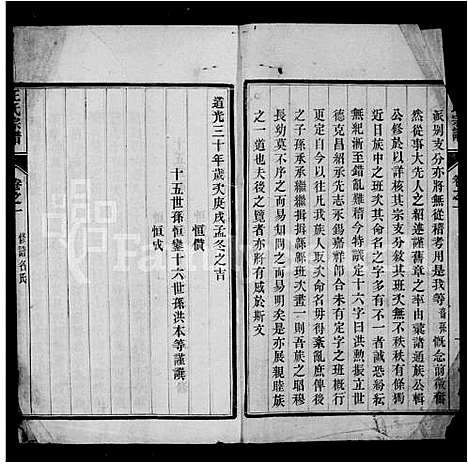 宗譜
卷之一
派別支分亦將無從稽考用是我等𠀋孫慨念前徽奮
然從事大先人之紹述謹舊章之率由彙諸通族公輯
公修於以核其宗支分其班次無不秩秩有條獨
近日族中之班次其命名之字多有不一或恐紛紜
無紀漸至錯亂難稽今特議定十六字曰洪勲振立世
德克昌紹承先志永錫嘉祥師合未有定字之班概行
之子孫承承繼繼緝緝緜緜班次畫一則吾族之昭穆
長幼莫不序之而易知閲之而易明矣是亦展親睦族
之一道也後之覽者亦將有感於斯文
道光三十年歲次庚戌孟冬之吉
恒儹
十五世孫恒鑾十六世孫洪本等謹譔
恒成
王氏宗譜
卷之一
修譜名氏